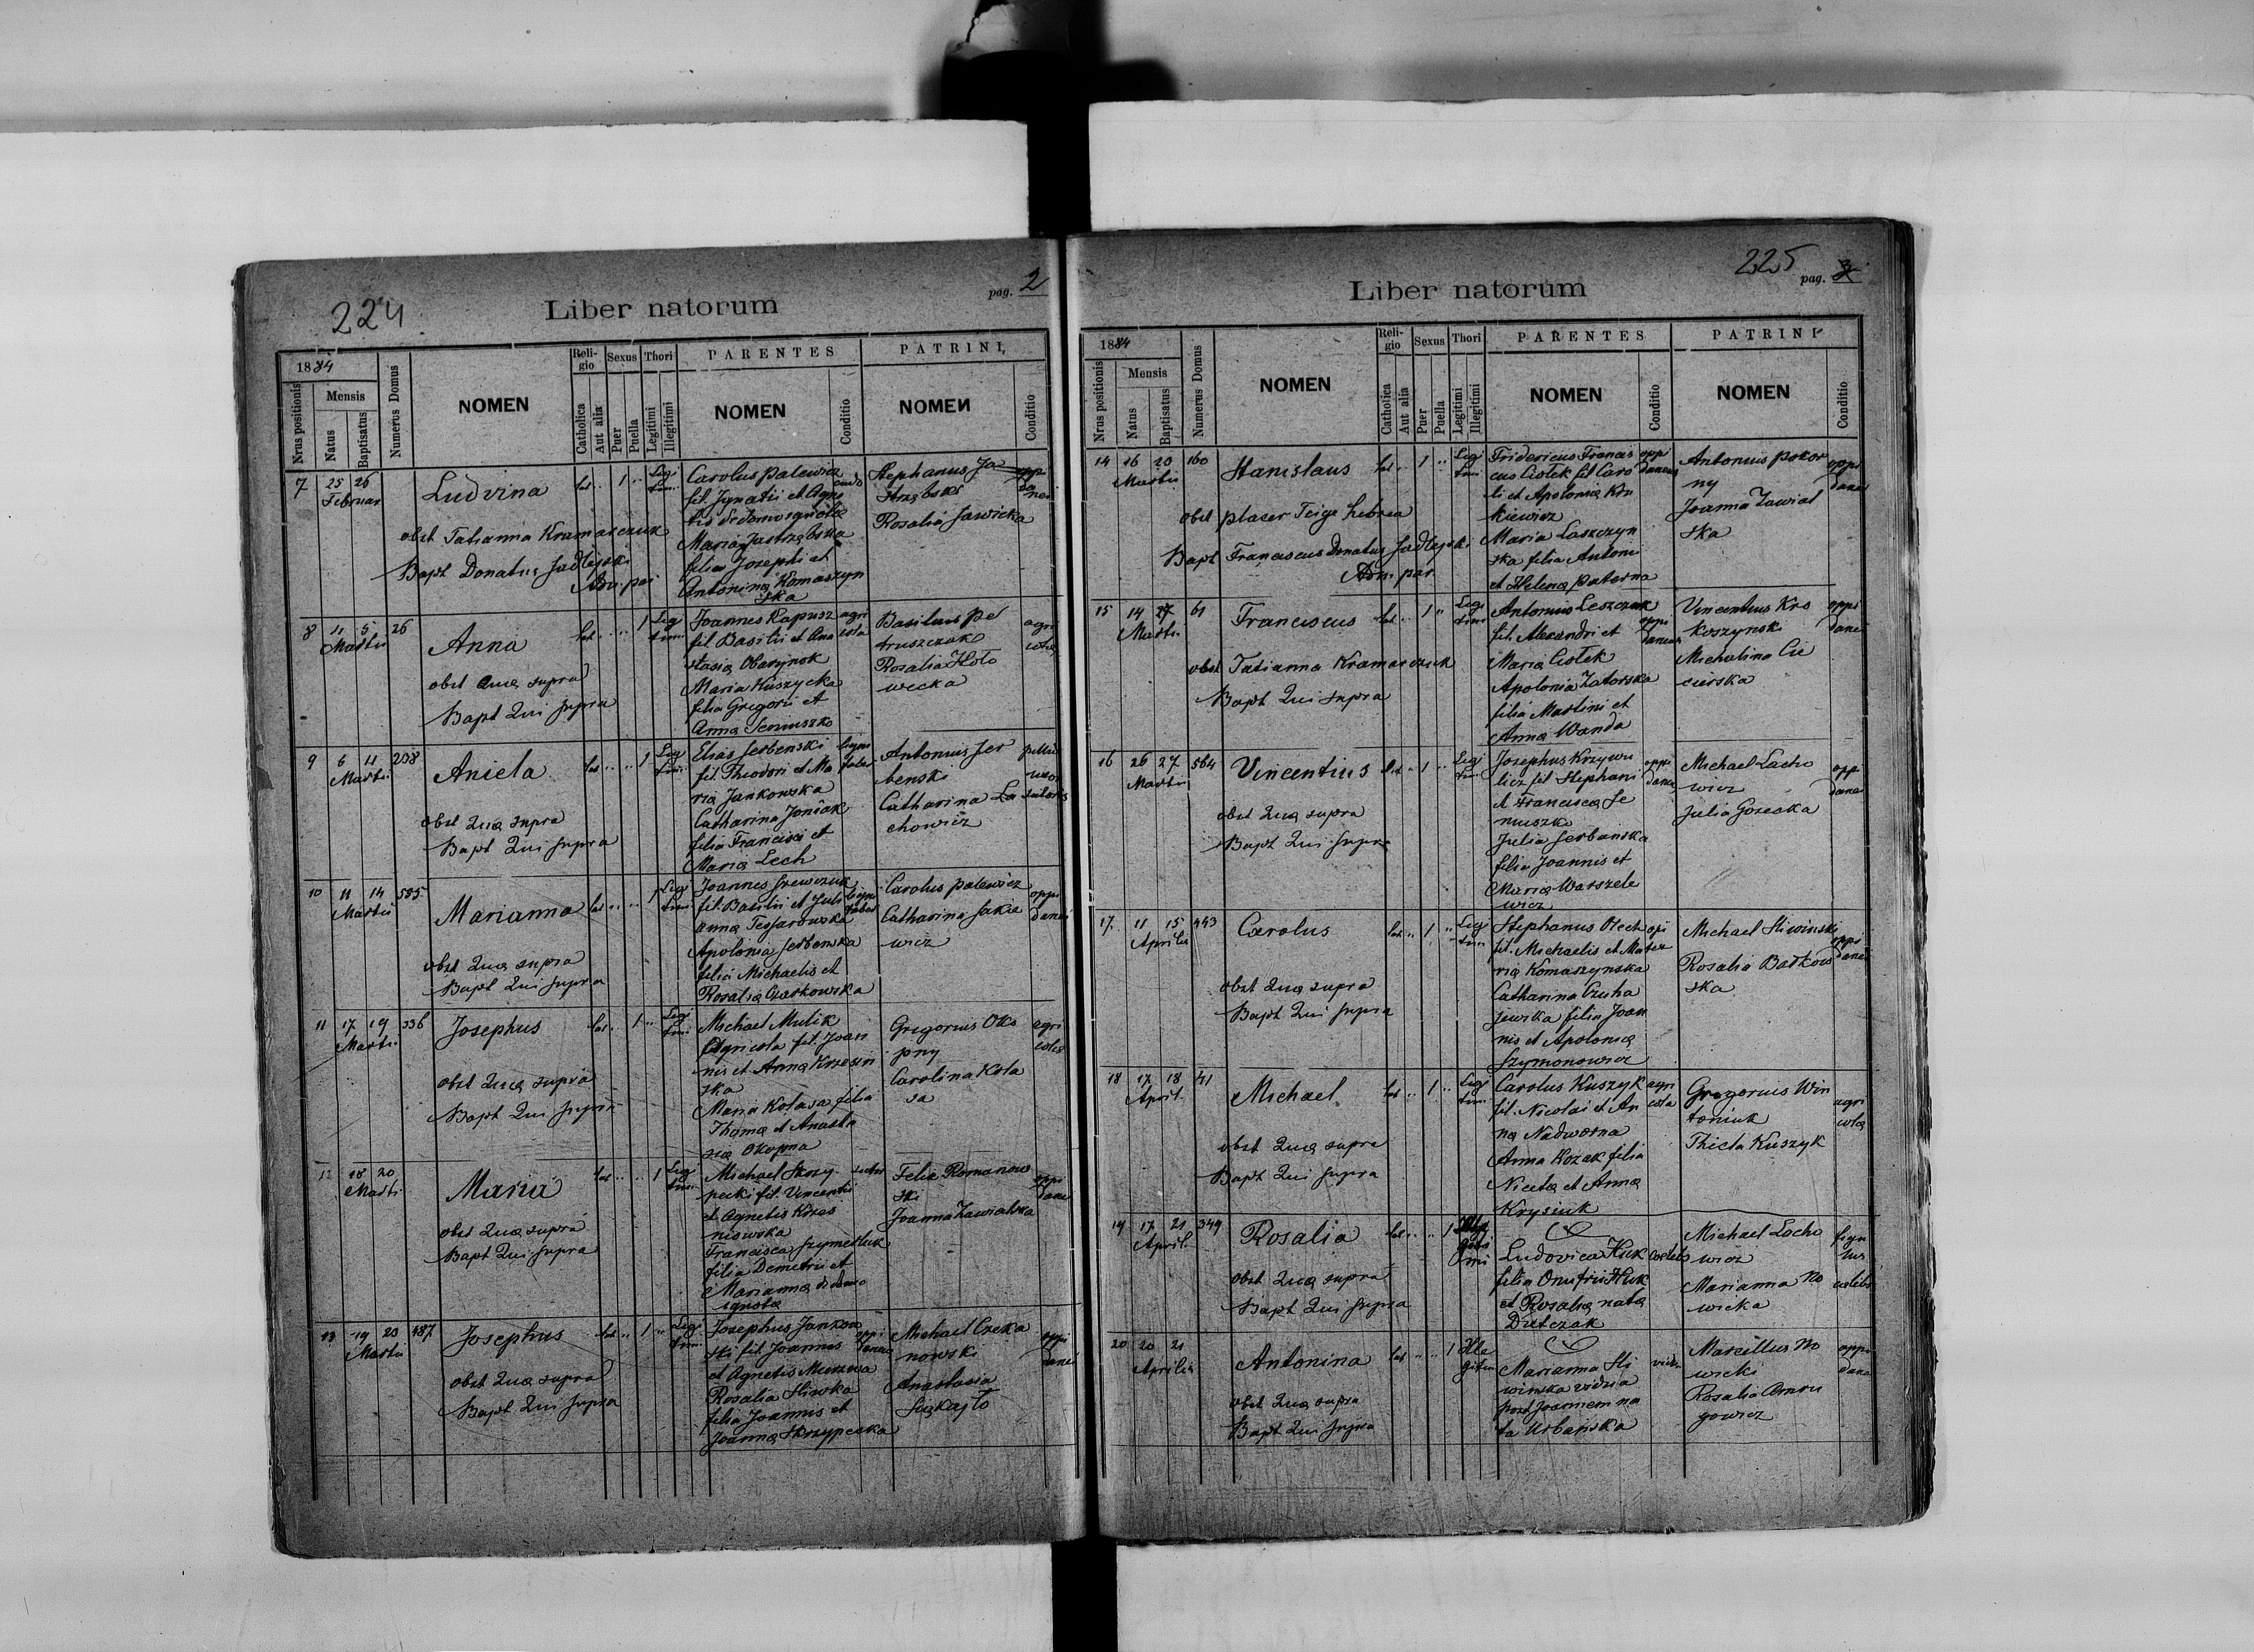 224
Liber natorum
pag. 2
1884
Nrus positionis
Mensis
Natus
Baptisatus
Numerus Domus
NOMEN
Religio
Catholica
Aut alia
Sexus
Puer
Puella
Thori
Legitimi
Illegitimi
PARENTES
NOMEN
Conditio
PATRINI
NOMEN
Conditio
7
25 26
Februar
Ludvina
obst Tatianna Kramarczuk
Bapt Donatus Sadłejski
Adm. par
lat
1
Legi
timi
Carolus Palewicz
fil Ignatii et Agne
tis de domo ignota
Maria Jastrząbska
filia Josephi et
Antonina Komaszyn
ska
Stephanus Ja
strząbski
Rosalia Sawicka
oppi
da
nei
8
4 5
Martii
26
Anna
obst Quae supra
Bapt Qui supra
lat
1
Legi
timi
Joannes Kapusz
fil Basilii et Ana
stasia Obarynok
Maria Kuszycka
filia Gregorii et
Anna Semuszko
agri
cola
Basilius Pe
truszczak
Rosalia Hoło
wecka
agri
colae
9
6 11
Martii
298
Aniela
obst Quae supra
Bapt Qui supra
lat
1
Legi
timi
Elias Serbenski
fil. Theodori et Ma
ria Jankowska
Catharina Joniak
filia Francisci et
Maria Lech
ligni
faber
Antonius Ser
benski
Catharina La
chowicz
10
11 14
Martii
585
Marianna
obst Quae supra
Bapt Qui supra
lat
1
Legi
timi
Joannes Szewczuk
fil. Basilii et Juli
anna Tesjarowska
Apolonia Serbenska
filia Michaelis et
Rosalia Czatkowska
ligni
faber
Carolus Palewicz
Catharina Sakie
wicz
oppi
danei
11
17 19
Martii
336
Josephus
obst Quae supra
Bapt Qui supra
lat
1
Legi
timi
Michael Mulik
Agricola fil. Joan
nis et Anna Krzesin
ska
Maria Kolasa filia
Thoma et Anasta
sia Okopna
Gregorius Oko
pny
Carolina Kola
sa
agri
colae
12
18 20
Martii
Maria
obst Quae supra
Bapt Qui supra
lat
1
Legi
timi
Michael Skrzy
pecki fil. Vincentii
et Agnetis Krzes
niowska
Francisca Szymetluk
filia Demetrii et
Marianna de domo
ignota
sutor
Felix Romanow
ski
Joanna Zawialska
oppi
danei
13
19 23
Martii
487
Josephus
obst Quae supra
Bapt Qui supra
lat
1
Legi
timi
Josephus Jankow
ski fil. Joannis
et Agnetis
Rosalia Sliwka
filia Joannis et
Joanna Skrzypecka
oppi
daneus
Michael Czeka
nowski
Anastasia
Siąkajło
oppi
danei
225
Liber natorum
pag. 3
1884
Nrus positionis
Mensis
Natus
Baptisatus
Numerus Domus
NOMEN
Religio
Catholica
Aut alia
Sexus
Puer
Puella
Thori
Legitimi
Illegitimi
PARENTES
NOMEN
Conditio
PATRINI
NOMEN
Conditio
14
16 20
Martii
160
Stanislaus
obst placer Feige hebrea
Bapt Franciscus Donatus Sadłejski
Adm par
lat
1
Legi
timi
Fridericus Francis
cus Ciołek fil Caro
li et Apolonia Kru
kiewicz
Maria Laszczyn
ska filia Antoni
et Helena Paterna
oppi
daneus
Antonius Pokor
ny
Joanna Zawial
ska
oppi
danei
15
14 27
Martii
61
Franciscus
obst Tatianna Kramarczuk
Bapt Qui supra
lat
1
Legi
timi
Antonius Leszczuk
fil. Alexandri et
Maria Ciołek
Apolonia Zatorska
filia Martini et
Anna Wanda
oppi
daneus
Vincentius Kro
koszynski
Michalina Cie
cierska
oppi
danei
16
26 27
Martii
564
Vincentius
obst Quae supra
Bapt Qui supra
lat
1
Legi
timi
Josephus Krzywu
licz fil Stephani
et Francisca Se
muszka
Julia Serbanska
filia Joannis et
Maria Warszele
wicz
oppi
daneus
Michael Lacho
wicz
Julia Gorecka
oppi
danei
17.
11 15
Aprilis
443
Carolus
obst Quae supra
Bapt Qui supra
lat
1
Legi
timi
Stephanus Olech
fil. Michaelis et Ma
ria Komaszynska
Catharina Czuha
jewska filia Joan
nis et Apolonia
Szymonowicz
Michael Sliwinski
Rosalia Bałkow
ska
oppi
danei
18
17 18
April.
41
Michael
obst Quae supra
Bapt Qui supra
lat
1
Legi
timi
Carolus Kuszyk
fil. Nicolai et An
na Nadworna
Anna Kozak filia
Niceta et Anna
Krysiuk
agri
cola
Gregorius Win
toniuk
Thecla Kuszyk
agri
colae
19
17 21
April.
349
Rosalia
obst Quae supra
Bapt Qui supra
lat
1
Ille
giti
mi
Ludovica Huk
filia Onufrii Huk
et Rosalia nata
Dretczak
coelebs
Michael Lacho
wicz
Marianna No
wicka
figu
lus
coelebs
20
20 21
Aprilis
Antonina
obst Quae supra
Bapt Qui supra
lat
1
Ille
gitim
Marianna Sli
winska vidua
post Joannem na
ta Urbańska
vidua
Marcillus No
wicki
Rosalia Amru
gowicz
oppi
danei